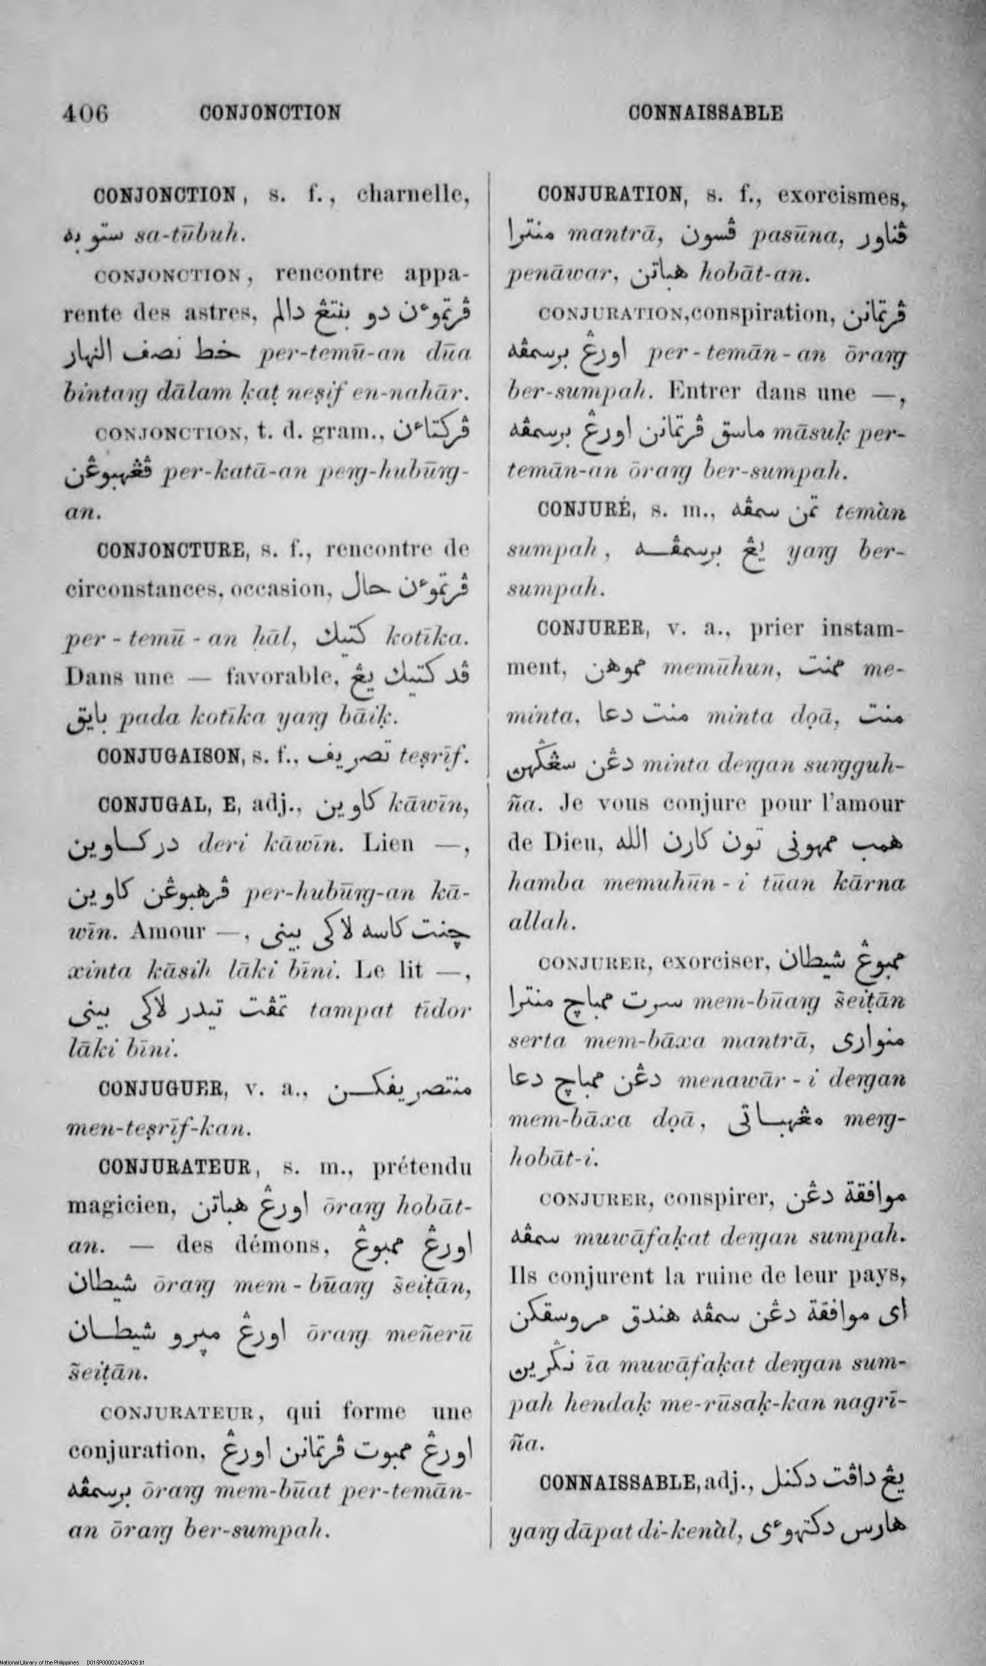 406 CONJONCTION CONNAISSABLE
CONJONCTION, s. f., charnelle,
ستوبه sa-tūbuh.
CONJONCTION, rencontre appa-
rente des astres, ڤرتموءن دو بنتڠ دالم
خط نصف النهار per-temū-an dūa
bintaŋ dālam ḳaṭ neṣif en-nahār.
CONJONCTION, t. d. gram., ڤركتاءن
ڤڠهبوڠن per-katā-an peŋ-hubūŋ-
an.
CONJONCTURE, s. f., rencontre de
circonstances, occasion, ڤرتموءن حال
per-temū-an ḥāl, كتيك kotīka.
Dans une — favorable, ڤد كتيك يڠ
بايق pada kotīka yaŋ bāiḳ.
CONJUGAISON, s. f., تصريف teṣrīf.
CONJUGAL, E, adj., كاوين kāwīn,
دركاوين deri kāwīn. Lien —,
ڤرهبوڠن كاوين per-hubūŋ-an kā-
wīn. Amour —, چنت كاسه لاكي بيني
xinta kāsih lāki bīni. Le lit —,
تمڤت تيدر لاكي بيني tampat tīdor
lāki bīni.
CONJUGUER, v. a., منتصريفكن
men-teṣrīf-kan.
CONJURATEUR, s. m., prétendu
magicien, اورڠ هباتن ōraŋ hobāt-
an. — des démons, اورڠ ممبوڠ
شيطان ōraŋ mem-būaŋ šeiṭān,
اورڠ مڽرو شيطان ōraŋ meñerū
šeiṭān.
CONJURATEUR, qui forme une
conjuration, اورڠ ممبوت ڤرتمانن اورڠ
برسمڤه ōraŋ mem-būat per-temān-
an ōraŋ ber-sumpah.
CONJURATION, s. f., exorcismes,
منترا mantrā, ڤسون pasūna, ڤناور
penāwar, هباتن hobāt-an.
CONJURATION, conspiration, ڤرتمانن
اورڠ برسمڤه per-temān-an ōraŋ
ber-sumpah. Entrer dans une —,
ماسق ڤرتمانن اورڠ برسمڤه māsuḳ per-
temān-an ōraŋ ber-sumpah.
CONJURÉ, s. m., تمن سمڤه temàn
sumpah, يڠ برسمڤه yaŋ ber-
sumpah.
CONJURER, v. a., prier instam-
ment, مموهن memūhun, ممنت me-
minta, منت دعا minta doạ̄, منت
دڠن سڠڬهن minta deŋan suŋguh-
ña. Je vous conjure pour l'amour
de Dieu, همب ممهوني تون كارن الله
hamba memuhūn-i tūan kārna
allah.
CONJURER, exorciser, ممبوڠ شيطان
سرت ممباچ منترا mem-būaŋ šeiṭān
serta mem-bāxa mantrā, منواري
دڠن ممباچ دعا menawār-i deŋan
mem-bāxa doạ̄, مڠهباتي meŋ-
hobāt-i.
CONJURER, conspirer, موافقة دڠن
سمڤه muwāfaḳat deŋan sumpah.
Ils conjurent la ruine de leur pays,
اي موافقة دڠن سمڤه هندق مروسقكن
نڬرين īa muwāfaḳat deŋan sum-
pah hendaḳ me-rūsaḳ-kan nagrī-
ña.
CONNAISSABLE, adj., يڠ داڤت دكنل
yaŋ dāpat di-kenàl, هارس دكتهوءي
National Library of the Philippines